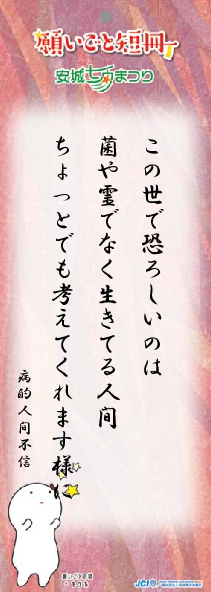 願いごと短冊
安城七夕まつり
この世で恐ろしいのは
菌や霊でなく生きてる人間
ちょっとでも考えてくれます様に
病的人间不信
願いごと短冊
JCI